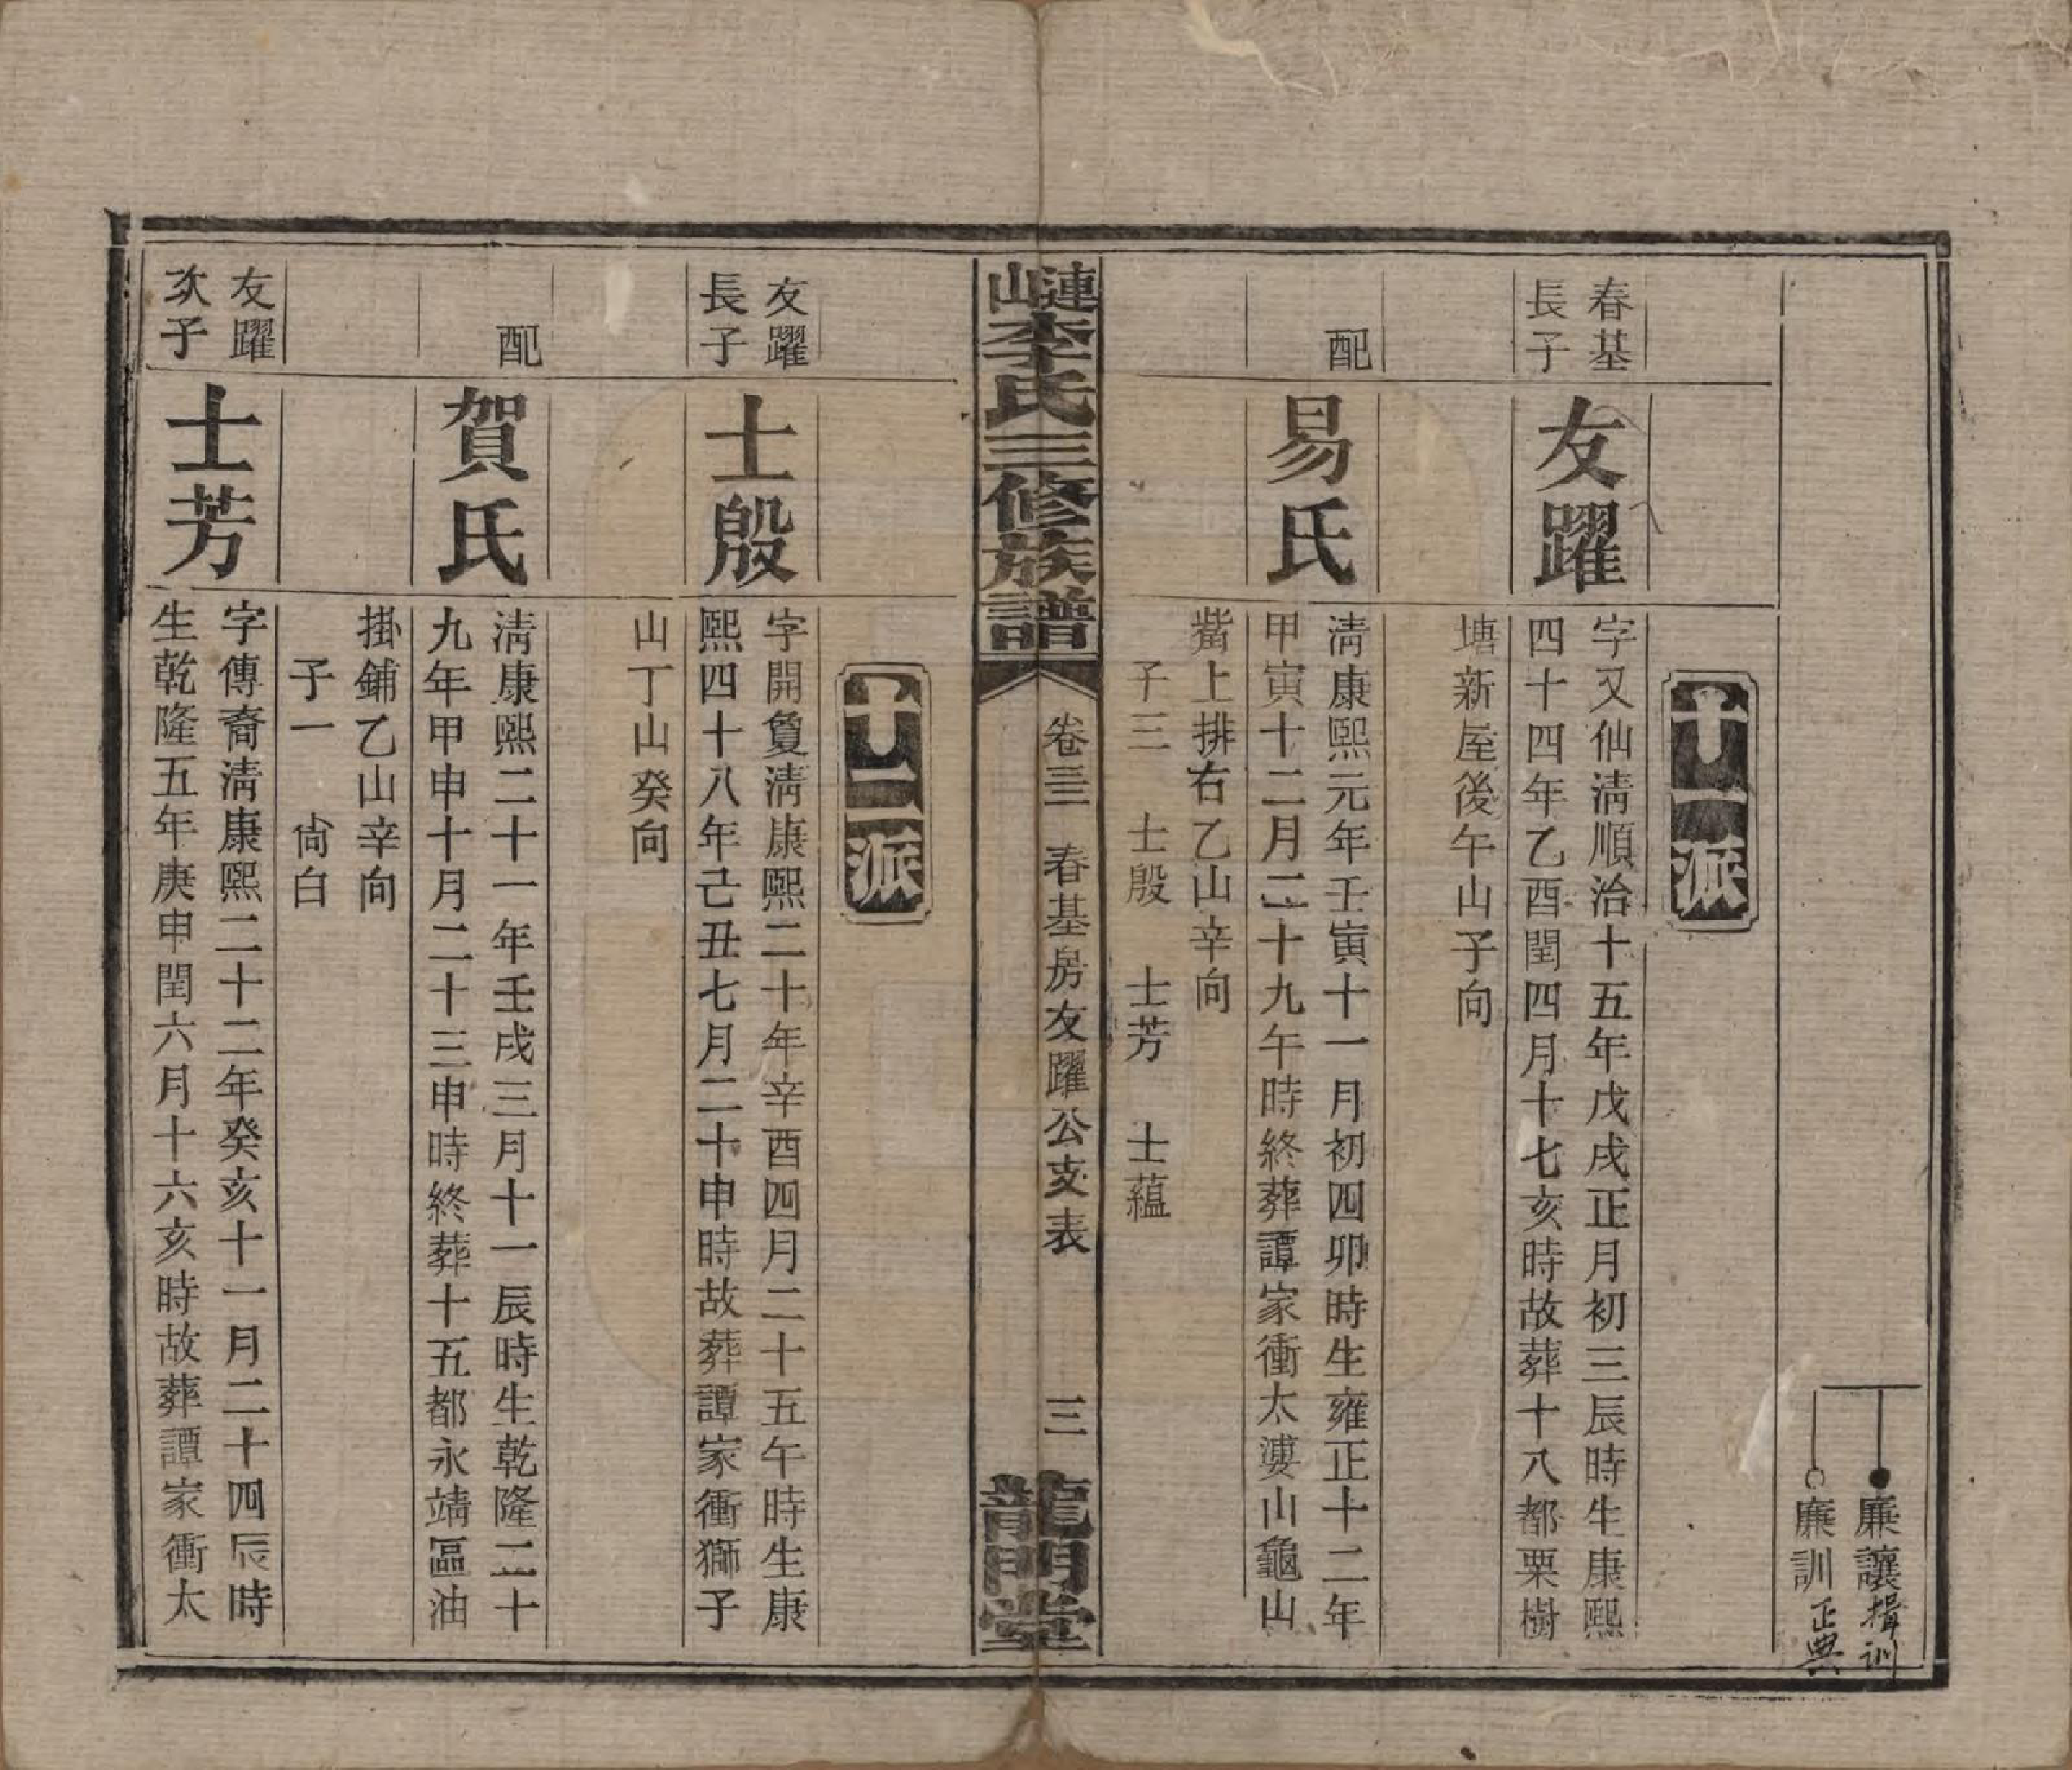 廉讓揖训
廉訓正典
十一派
春基
長子
友躍
字又仙淸順治十五年戊戌正月初三辰時生康熙
四十四年乙酉閏四月十七亥時故葬十八都栗樹
塘新屋後午山子向
配
易氏
淸康熙元年壬寅十一月初四卯時生雍正十二年
甲寅十二月二十九午時終葬譚家衝太婆山龜山
觜上排右乙山辛向
子三 士殷 士芳 士蘊
漣山李氏三修族譜
卷三 春基房友躍公支表
三
龍門堂
十二派
友躍
長子
士殷
字開敻淸康熙二十年辛酉四月二十五午時生康
熙四十八年己丑七月二十申時故葬譚家衝獅子
山丁山癸向
配
賀氏
淸康熙二十一年壬戌三月十一辰時生乾隆二十
九年甲申十月二十三申時終葬十五都永靖區油
掛鋪乙山辛向
子一 尙白
友躍
次子
士芳
字傳裔淸康熙二十二年癸亥十一月二十四辰時
生乾隆五年庚申閏六月十六亥時故葬譚家衝太